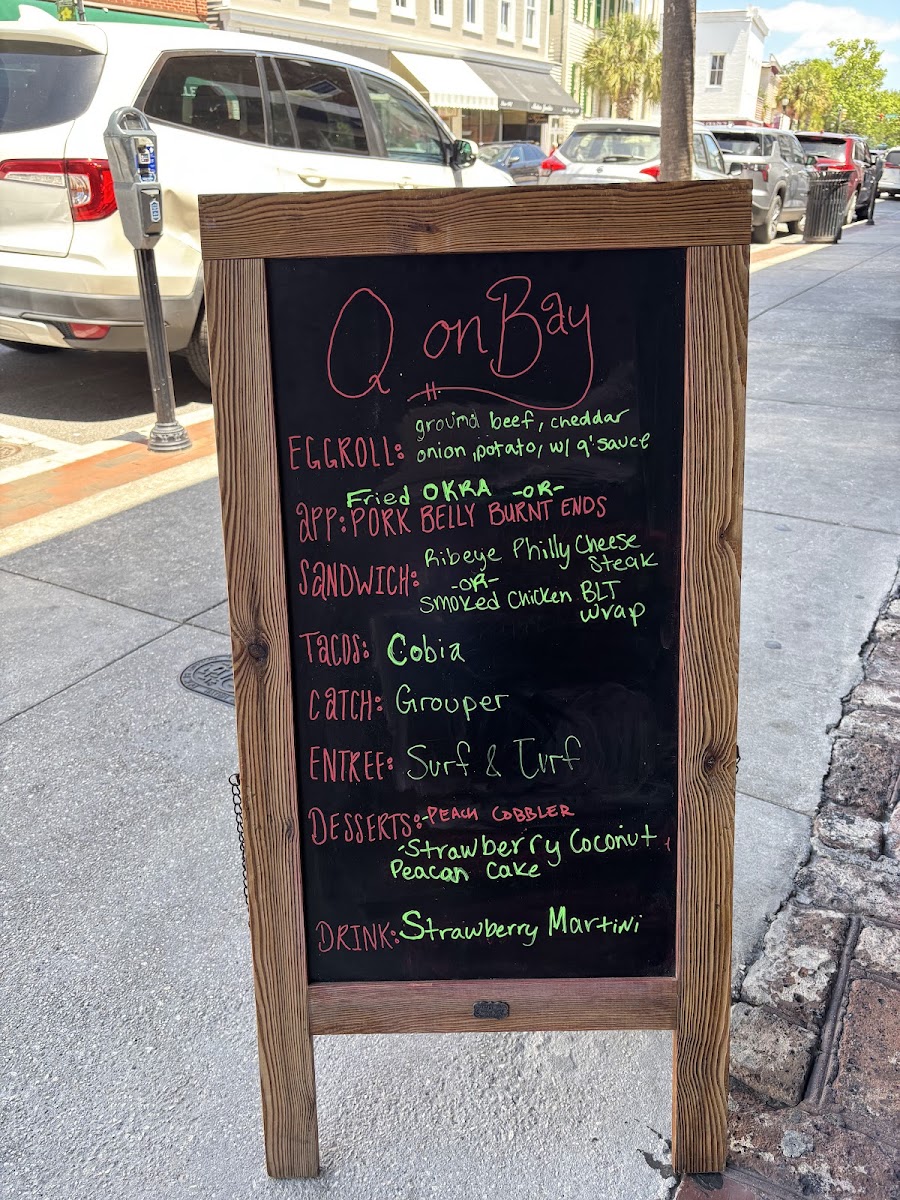 Q on Bay
EGGROLL: ground beef, cheddar
onion, potato, w/ q' sauce
Fried OKRA -OR-
app: PORK BELLY BURNT ENDS
SANDWICH: Ribeye Philly Cheese
Steak
-OR-
Smoked Chicken BLT
wrap
Tacos: Cobia
CATCH: Grouper
ENTREE: Surf & Turf
DESSERTS: -PEACH COBBLER
-Strawberry Coconut
Peacan Cake
DRINK: Strawberry Martini